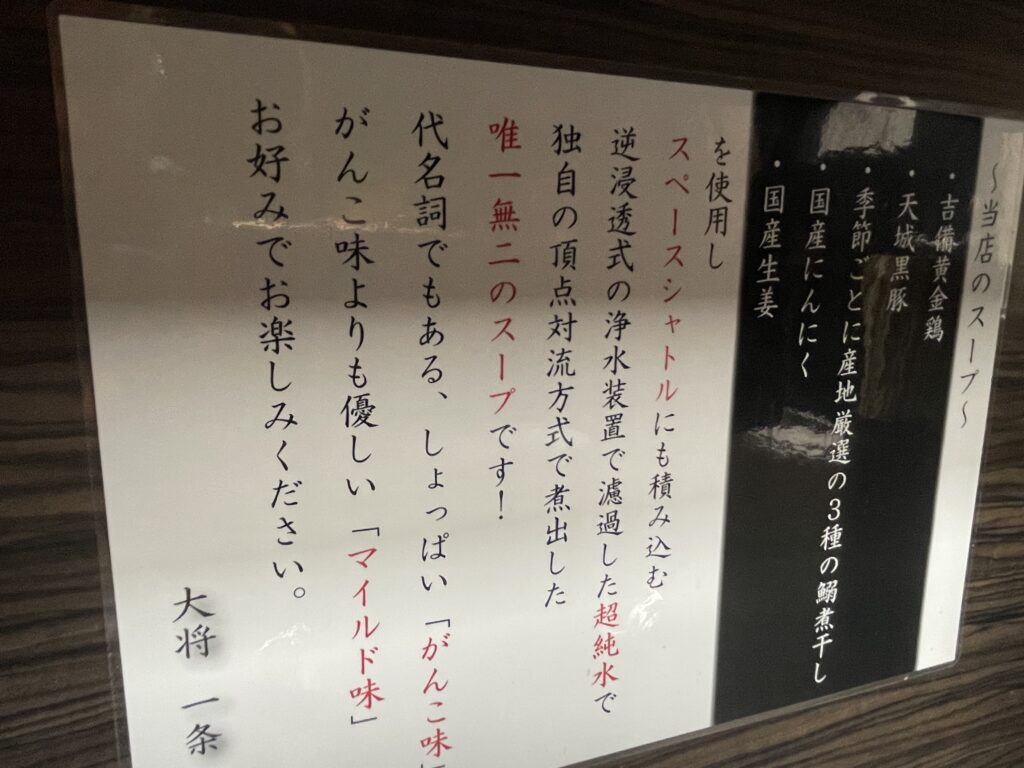 ～当店のスープ～
・吉備黄金鶏
・天城黒豚
・季節ごとに産地厳選の3種の鰯煮干し
・国産にんにく
・国産生姜
を使用し
スペースシャトルにも積み込む
逆浸透式の浄水装置で濾過した超純水で
独自の頂点対流方式で煮出した
唯一無二のスープです！
代名詞でもある、しょっぱい「がんこ味」
がんこ味よりも優しい「マイルド味」
お好みでお楽しみください。
大将 一条